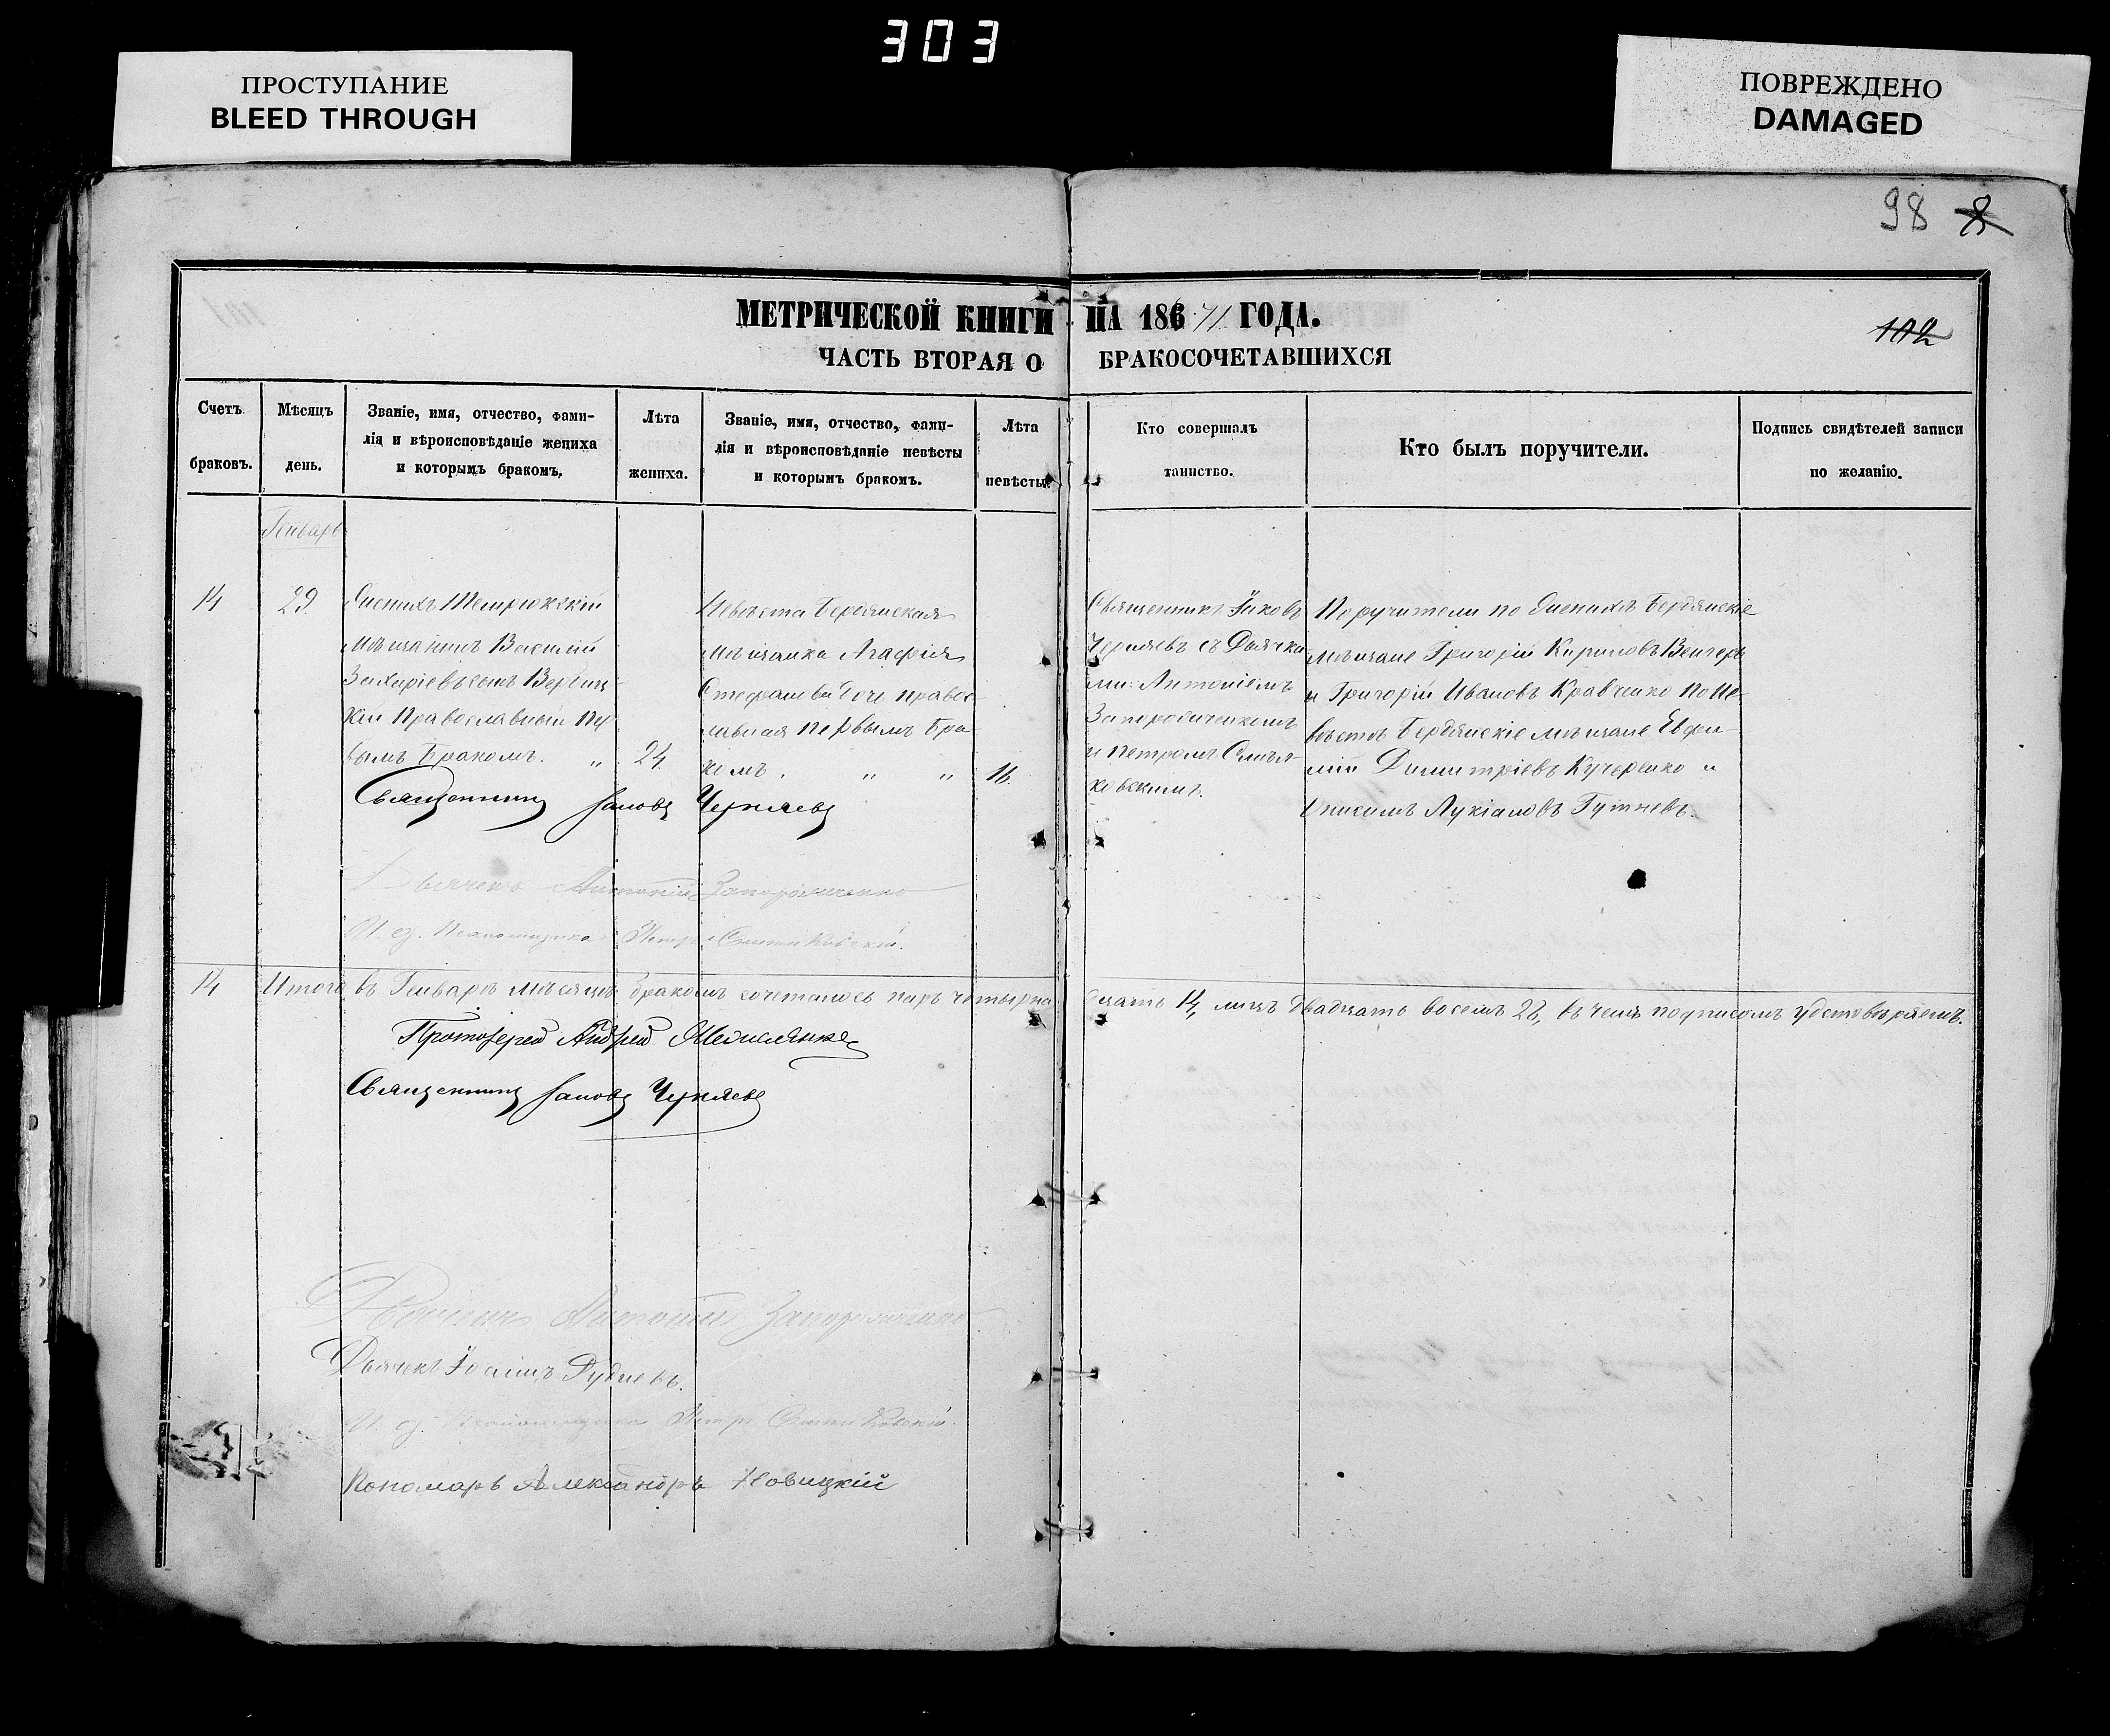 303
ПРОСТУПАНИЕ
BLEED THROUGH
ПОВРЕЖДЕНО
DAMAGED
98 8
МЕТРИЧЕСКОЙ КНИГИ НА 18671 ГОДА.
102
ЧАСТЬ ВТОРАЯ О БРАКОСОЧЕТАВШИХСЯ
Счетъ
браковъ.
Мѣсяцъ
день.
Званіе, имя, отчество, фами-
лія и вѣроисповѣданіе жениха
и которымъ бракомъ.
Лѣта
жениха.
Званіе, имя, отчество, фами-
лія и вѣроисповѣданіе невѣсты
и которымъ бракомъ.
Лѣта
невѣсты.
Кто совершалъ
таинство.
Кто былъ поручители.
Подпись свидѣтелей записи
по желанію.
Генварь
14
29
Женихъ Темрюкскій
мѣщанинъ Василій
Захаріевъ сынъ
кій Православный Пер
вымъ бракомъ. „
24
Невѣста Бердянская
мѣщанка Агафія
Стефанова дочь правос
лавная первымъ бра
комъ. „ „
16
Священникъ Іаковъ
Черняевъ съ Дьячка
ми: Антоніемъ
Запорожченкомъ
и Петромъ
ковскимъ.
Поручители по Женихѣ Бердянскіе
мѣщане Григорій Кириловъ Венгеръ
и Григорій Ивановъ Кравченко По Не
вѣстѣ Бердянскіе мѣщане Евфи
мій Димитріевъ Кучеренко и
Онисимъ Лукіановъ
Священникъ Іаковъ Черняевъ
Дьячекъ Антоній Запорожченко
И. д. Псаломщика Петръ
14
Итого въ Генварѣ мѣсяцѣ бракомъ сочеталось паръ четырна
дцать 14, лицъ двадцать восемь 28, въ чемъ подписомъ удостовѣряемъ.
Протоіерей Андрей
Священникъ Іаковъ Черняевъ
Дьячекъ Антоній Запорожченко
Дьячекъ Іоаннъ Рудневъ.
И. д. Псаломщика Петръ
Пономарь Александръ Новицкій